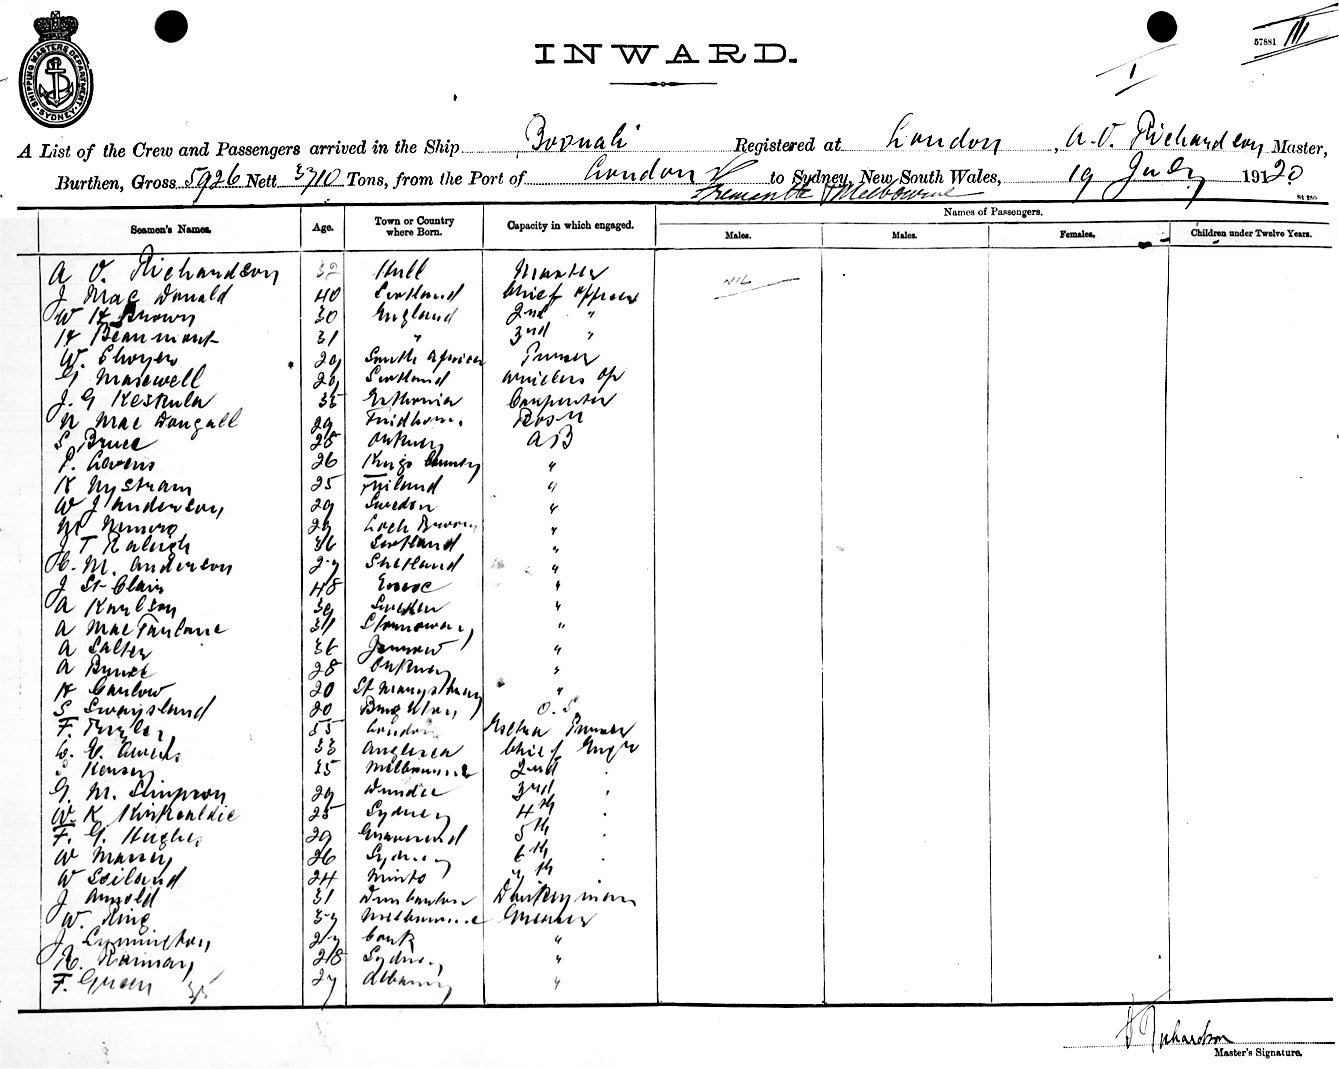 SHIPPING MASTERS DEPARTMENT. SYDNEY
INWARD.
57881 III
I
A List of the Crew and Passengers arrived in the Ship Boonah Registered at London, A. O. Richardson Master,
Burthen, Gross 5926 Nett 3710 Tons, from the Port of London to Sydney, New South Wales, 19 July 1920.
Fremantle Melbourne
Seamen's Names. Age. Town or Country where Born. Capacity in which engaged. Names of Passengers.
Males. Males. Females. Children under Twelve Years.
A O. Richardson 32 Hull Master NIL
J Mac Donald 40 Scotland Chief Officer
W H Brown 30 England 2nd "
H Beaumont 31 " 3rd "
W. 29 South African Purser
G Maxwell 29 Scotland Wireless Op
J. G Keskula 35 Esthonia Carpenter
N Mac Dougall 29 Bosn
S Bruce 28 Orkney AB
P. 26 Kings County "
K Nystram 25 Finland "
W J Anderson 29 Sweden "
Munro 29 Loch Broom "
J T Raleigh 36 Scotland "
M. Anderson 27 Shetland "
J St Clair 48 "
A Karlson 39 Sweden "
A MacFarlane 31 Stornoway "
A Salter 36 Jarrow "
A Bruce 28 Orkney "
H Carlow 20 St Marys "
S Swaysland 20 Brighton O. S
F. 55 London Extra Purser
E. Owens 33 Anglesea Chief Engr
Kenser 35 Melbourne 2nd "
G. M. Simpson 29 Dundee 3rd "
W. K. Kirkcaldie 25 Sydney 4th "
F. G. Hughes 29 Gravesend 5th "
W Massey 26 Sydney 6th "
W Soiland 24 Minto 7th
J Arnold 31 Dumbarton Donkeyman
W. King 37 Melbourne Greaser
J. Lymington 27 Cork "
R. 28 Sydney "
F. Green 27 Albany "
35
Richardson
Master's Signature.